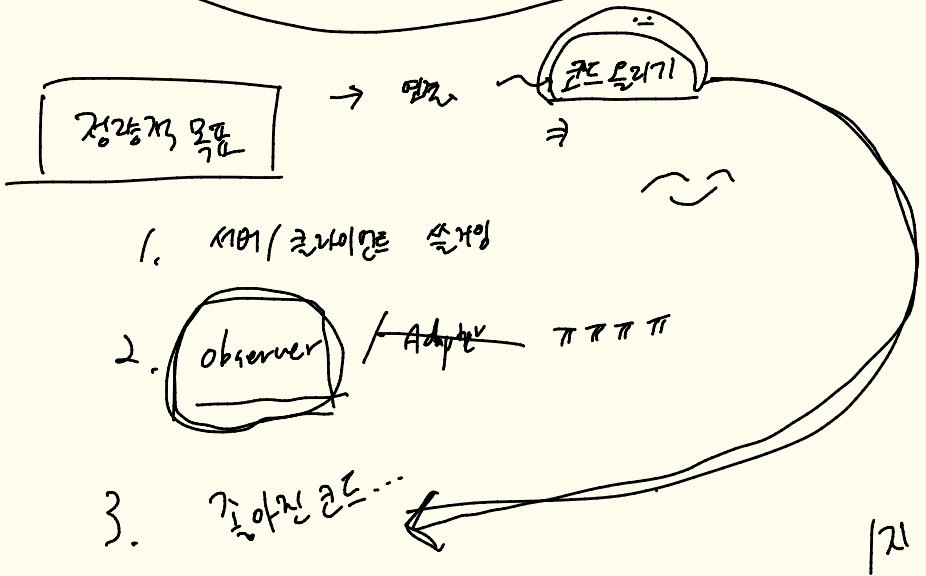 정량적 목표 → 코드 올리기
⇒
1. 서버/클라이언트 쓸게임
2. observer / Adapter ㅠㅠㅠㅠ
3. 좋아진 코드...